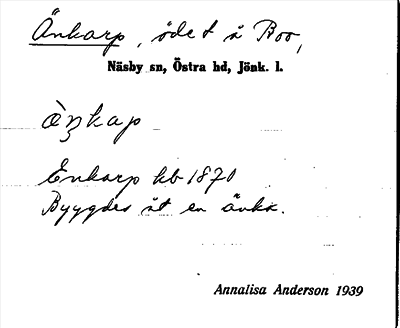 Änkarp, ödet å Boo,
Näsby sn, Östra hd, Jönk. l.
àŋkap
Enkarp kb 1870
Byggdes åt en änka.
Annalisa Anderson 1939